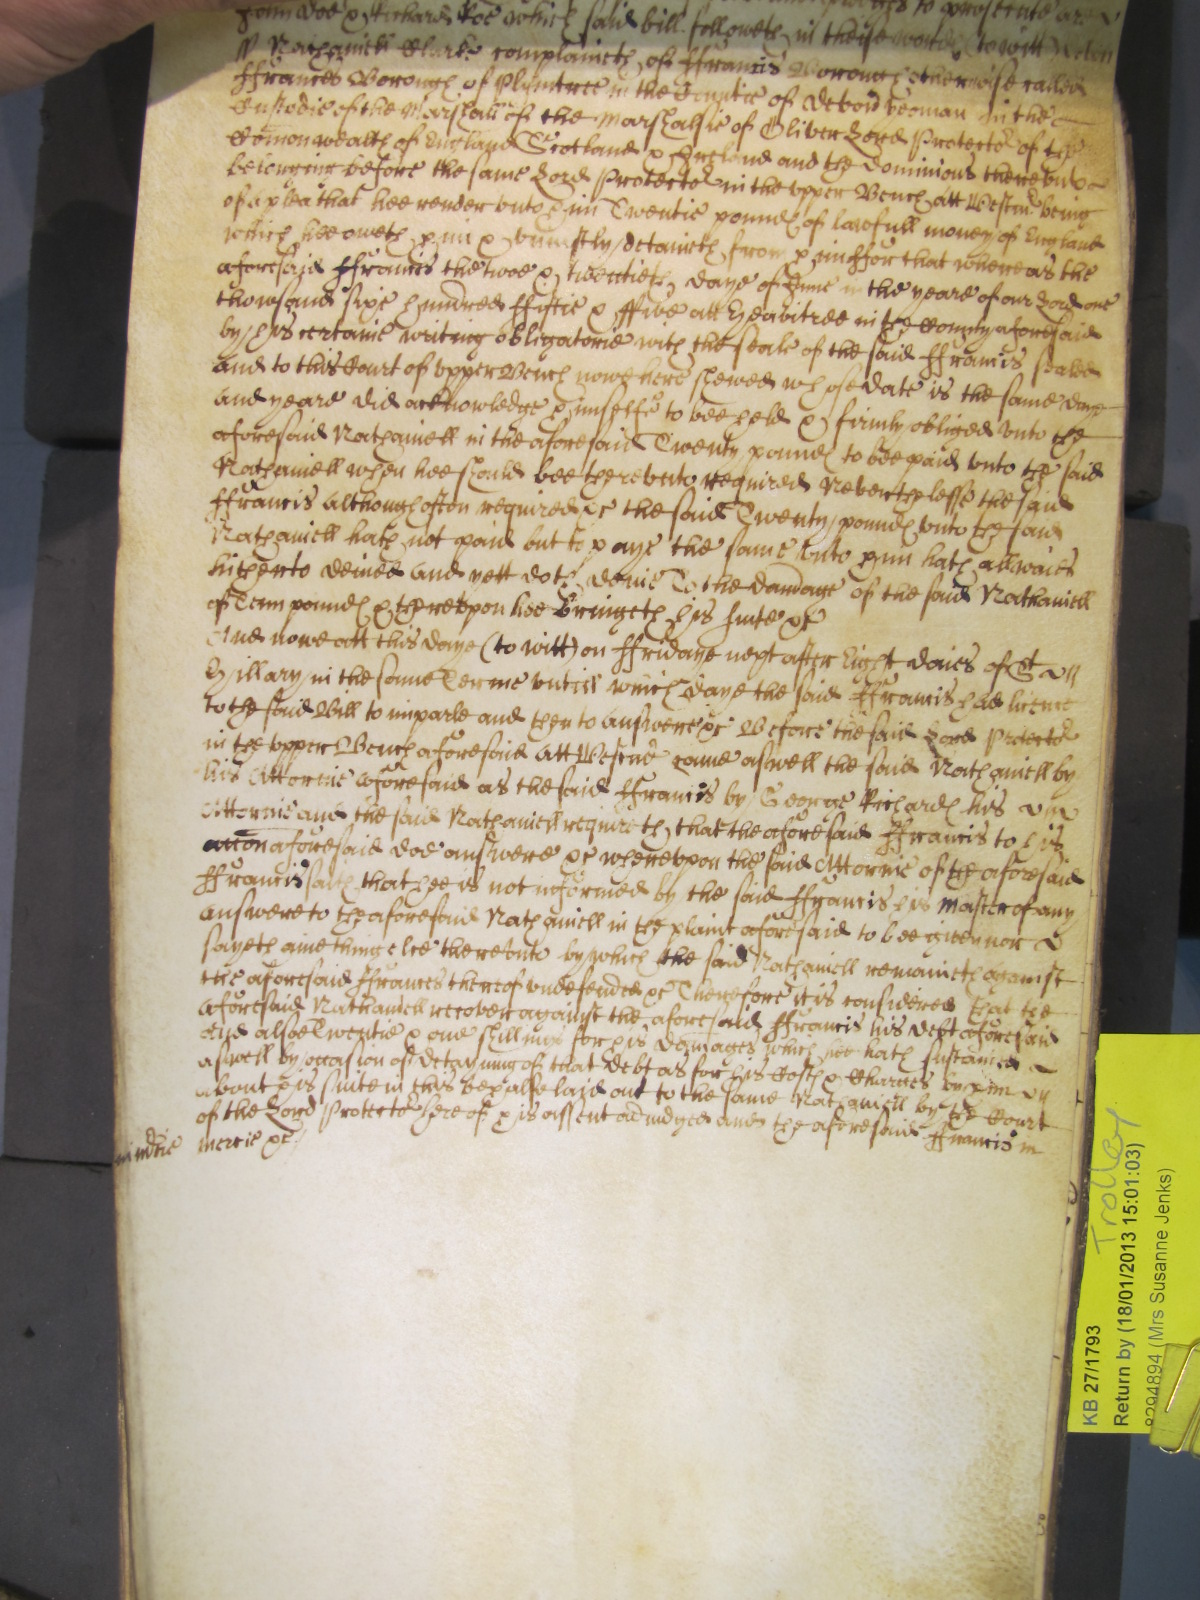 John Doe & Richard Roe which said bill followeth in theise words (to witt) Devon
ss Nathaniell Clarke complaineth of ffrancis Borough otherwise called
ffrances Borough of Plymtree in the Countie of Devon yeoman in the
Custodie of the Marshall of the Marshalsie of Oliver Lord Protector of the
Comonwealth of England Scotland & Ireland and the Dominions thereunto
belonging before the same Lord Protector in the upper Bench att Westmr being
of a plea that hee render unto him Twentie pounds of lawfull money of England
which hee oweth him & uniustly detaineth from him ffor that whereas the
aforesaid ffrancis the twoe & twentieth daye of June in the yeare of our Lord one
thowsand sixe hundred ffiftie & ffive att Heavitree in the County aforesaid
by his certaine writing obligatorie with the seale of the said ffrancis sealed
and to this Court of upper Bench nowe here shewed whose date is the same daye
and yeare did acknowledge himselfe to bee held & firmly obliged unto the
aforesaid Nathaniell in the aforesaid Twenty pounds to bee paid unto the said
Nathaniell when hee should bee thereunto required Neverthelesse the said
ffrancis Although often required &c the said Twenty pounds unto the said
Nathaniell hath not paid but to paye the same unto him hath allwaies
hitherto denied and yett doth denie To the damage of the said Nathaniell
of Tenn pounds & thereupon hee bringeth his suite &c
And nowe att this daye (to witt) on ffridaye next after Eight daies of St
Hillary in the same Terme untill which daye the said ffrancis had licence
to the said Bill to imparle and then to answere &c Before the said Lord Protector
in the upper Bench aforesaid att Westmr came aswell the said Nathaniell by
his Attornie aforesaid as the said ffrancis by George Richards his
Attornie and the said Nathaniell requireth that the aforesaid ffrancis to his
accon aforesaid doe answere &c whereupon the said Attornie of the aforesaid
ffrancis saith that hee is not informed by the said ffrancis his master of any
answere to the aforesaid Nathaniell in the plaint aforesaid to bee given nor
sayeth aniething else thereunto by which the said Nathaniell remaineth against
the aforesaid ffrances thereof undefended &c Therefore it is considered that the
aforesaid Nathaniell recover against the aforesaid ffrancis his debt aforesaid
and alsoe Twentie & one shillings for his damages which hee hath sustained
aswell by occasion of detayning of that debt as for his Costs & Charges by him
about his suite in this behalfe laid out to the same Nathaniell by the Court
of the Lord Protector here of his assent adiudged and the aforesaid ffrancis in
mercie &c
in mercie
KB 27/1793
Return by (18/01/2013 15:01:03)
8294894 (Mrs Susanne Jenks)
Trolley